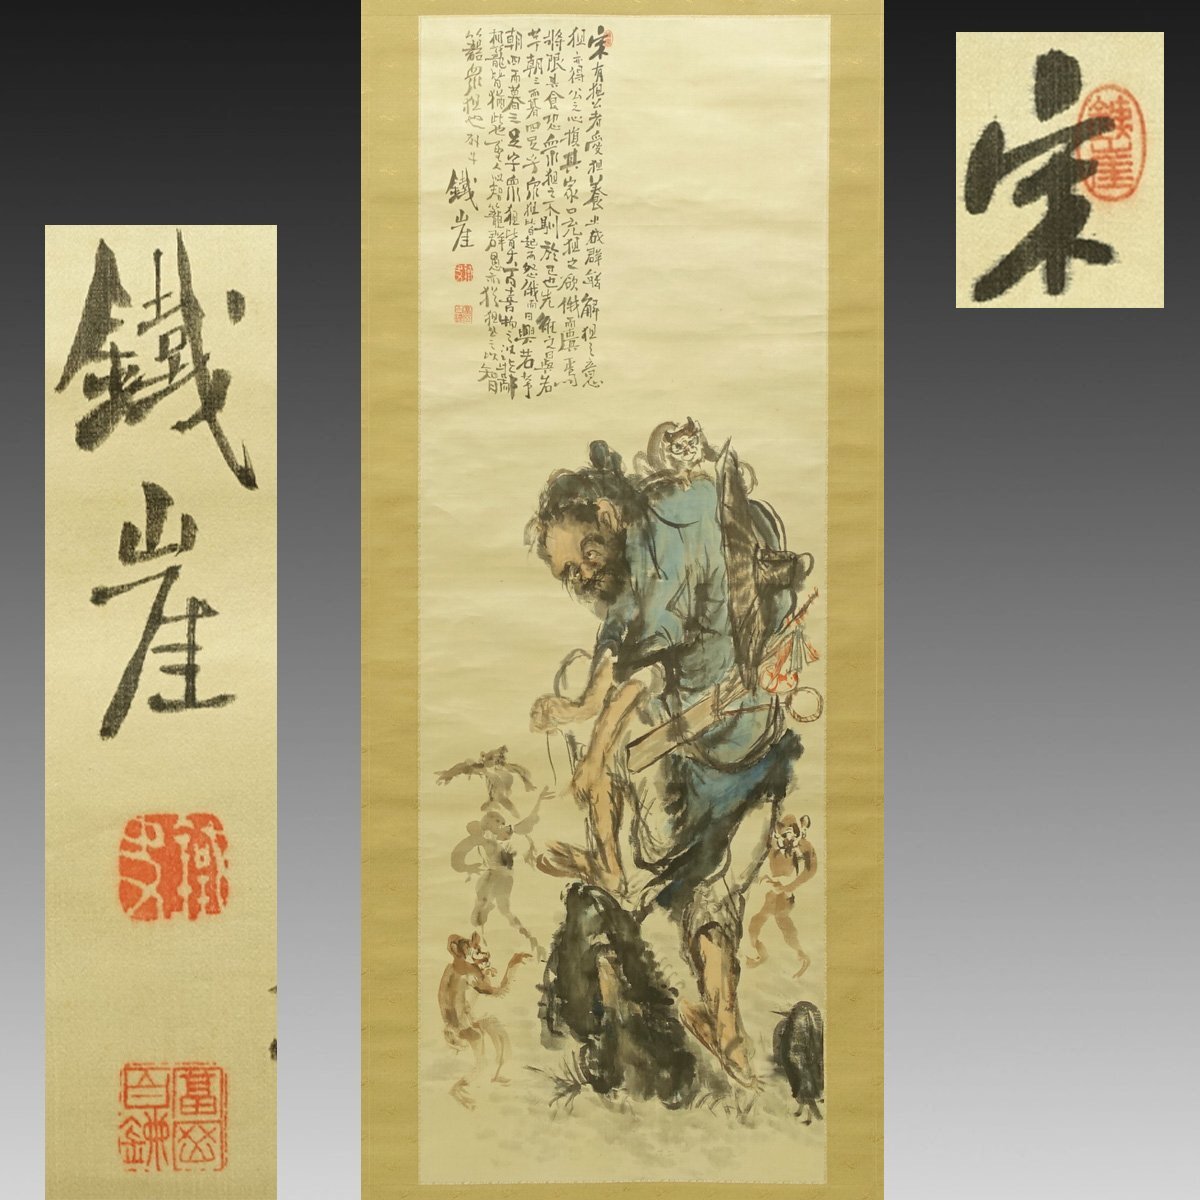 宋有狙公者愛狙養之成群能解狙之意
狙亦得公之心損其家口充狙之欲俄而匱焉
將限其食恐眾狙之不馴於己也先誑之曰與若
芧朝三而暮四足乎眾狙皆起而怒俄而曰與若芧
朝四而暮三足乎眾狙皆伏而喜物之以能鄙
相籠皆猶此也聖人以智籠群愚亦猶狙公之以智
籠眾狙也 列子
鐵崖
富岡百鍊
鐵崖
富岡百鍊
宋
鐵崖